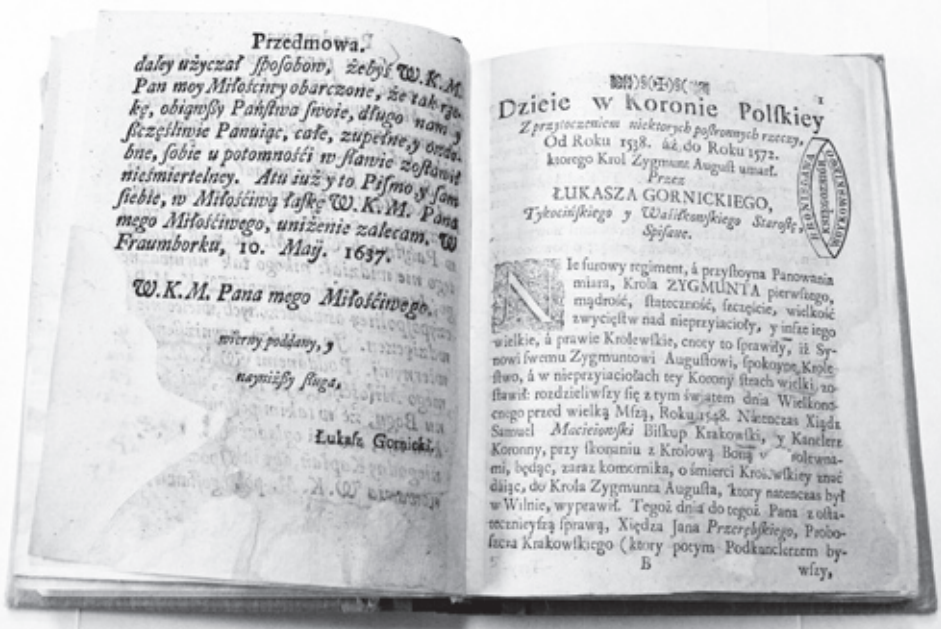 Przedmowa.
daley użyczał ſpoſobow, żebyś W.K.M.
Pan moy Miłośćiwy obarczone, że tak rzę-
kę, obiąwſzy Pańſtwa ſwoie, długo nam y
ſzczęśliwie Panuiąc, całe, zupełne, y ozdo-
bne, ſobie u potomnośći w ſławie zoſtawił
nieśmiertelney. Atu iuż y to Piſmo y ſam
ſiebie, w Miłośćiwą łaſkę W.K.M. Pana
mego Miłośćiwego, uniżenie zalecam. W
Fraumborku, 10. Maij. 1637.
W.K.M. Pana mego Miłośćiwego.
wierny poddany, y
nayniżſzy ſługa,
Łukasz Gornicki.
1
Dzieie w Koronie Polſkiey
Z przytoczeniem niektorych poſtronnych rzeczy,
Od Roku 1538. áż do Roku 1572.
ktorego Krol Zygmunt Auguſt umarł.
Przez
ŁUKASZA GORNICKIEGO,
Tykocińſkiego y Waſilkowſkiego Staroſtę,
Spiſane.
NIe ſurowy regiment, á przyſtoyna Panowania
miara, Krola ZYGMUNTA pierwſzego,
mądrość, ſtateczność, ſzczęście, wielkość
zwycięſtw nad nieprzyiacioły, y inſze iego
wielkie, á prawie Krolewſkie, cnoty to ſprawiły, iż Sy-
nowi ſwemu Zygmuntowi Auguſtowi, ſpokoyne Krole-
ſtwo, á w nieprzyiaciołach tey Korony ſtrach wielki zo-
ſtawił: rozdzieliwſzy ſię z tym światem dnia Wielkono-
cnego przed wielką Mſzą, Roku 1548. Natenczas Xiądz
Samuel Macieiowſki Biſkup Krakowſki, y Kanclerz
Koronny, przy ſkonaniu z Krolową Boną
mi, będąc, zaraz komornika, o śmierci Krolewſkiey znać
dáiąc, do Krola Zygmunta Auguſta, ktory natenczas był
w Wilnie, wyprawił. Tegoż dnia do tegoż Pana z oſta-
tecznieyſzą ſprawą, Xiędza Jana Przerębſkiego, Probo-
ſzcza Krakowſkiego (ktory potym Podkanclerzem by-
B
wſzy,
BRONISŁAWA